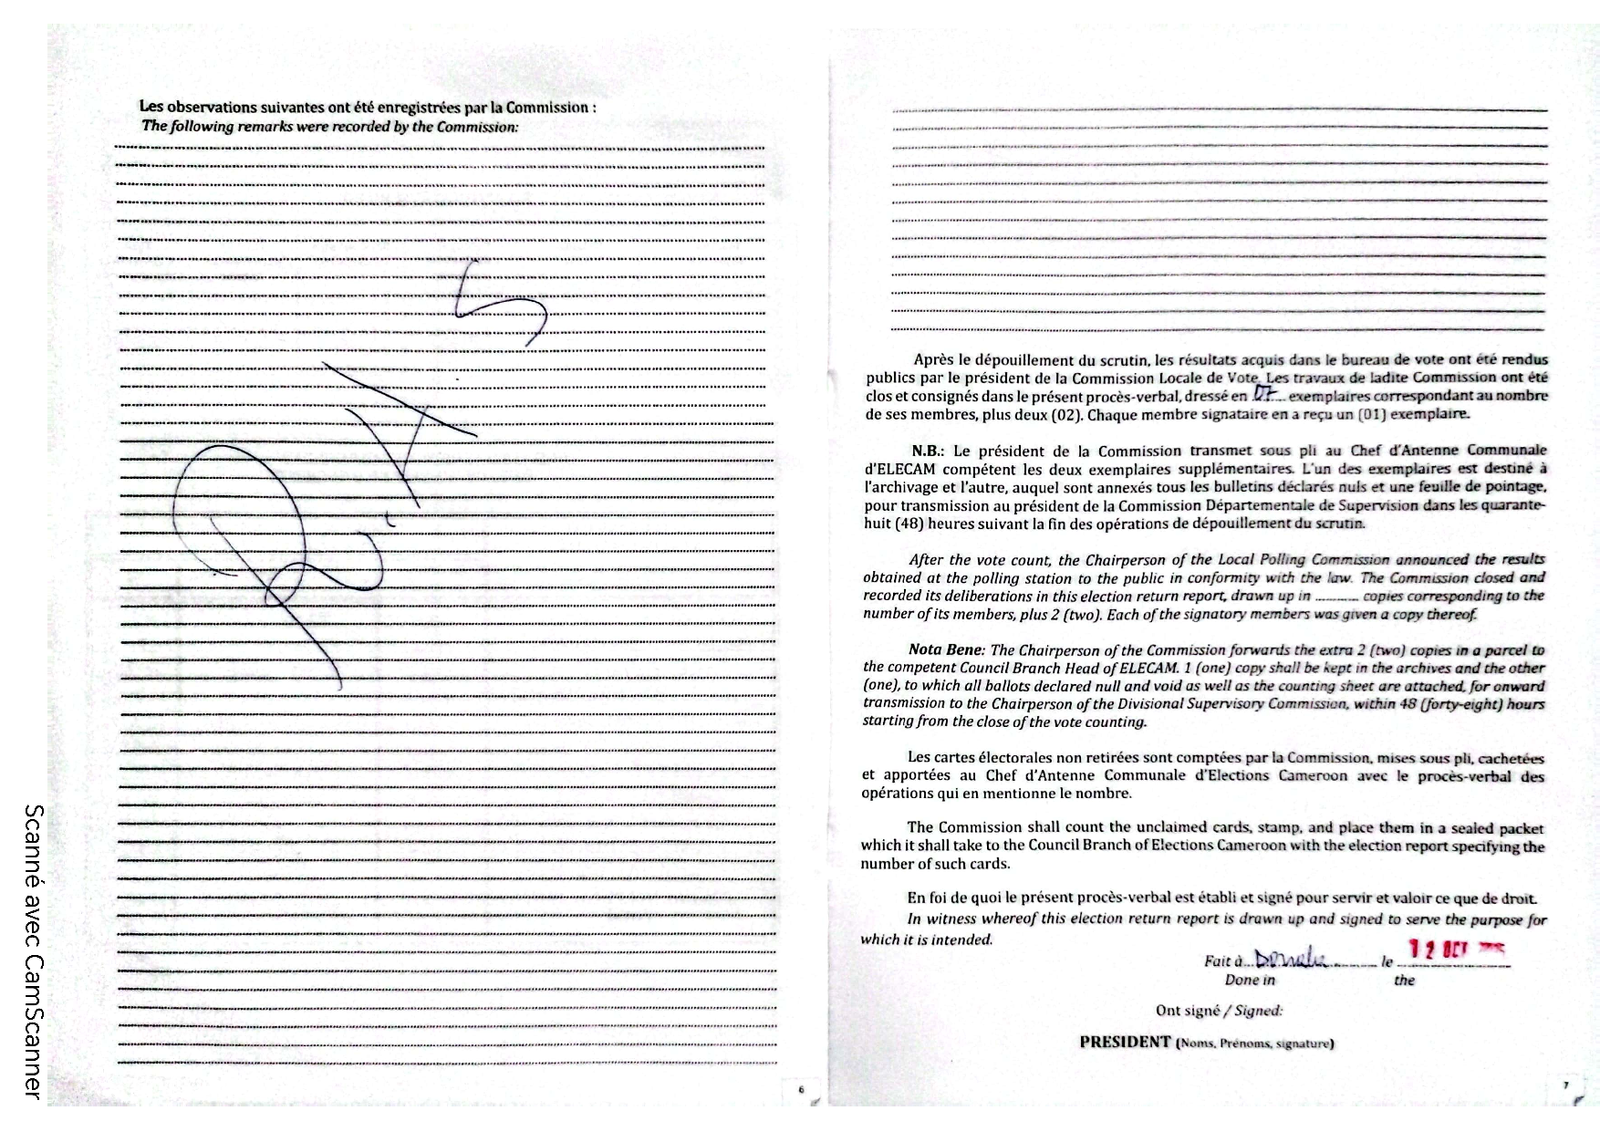 Les observations suivantes ont été enregistrées par la Commission :
The following remarks were recorded by the Commission:
6
Après le dépouillement du scrutin, les résultats acquis dans le bureau de vote ont été rendus
publics par le président de la Commission Locale de Vote. Les travaux de ladite Commission ont été
clos et consignés dans le présent procès-verbal, dressé en 07 exemplaires correspondant au nombre
de ses membres, plus deux (02). Chaque membre signataire en a reçu un (01) exemplaire.
N.B.: Le président de la Commission transmet sous pli au Chef d'Antenne Communale
d'ELECAM compétent les deux exemplaires supplémentaires. L'un des exemplaires est destiné à
l'archivage et l'autre, auquel sont annexés tous les bulletins déclarés nuls et une feuille de pointage,
pour transmission au président de la Commission Départementale de Supervision dans les quarante-
huit (48) heures suivant la fin des opérations de dépouillement du scrutin.
After the vote count, the Chairperson of the Local Polling Commission announced the results
obtained at the polling station to the public in conformity with the law. The Commission closed and
recorded its deliberations in this election return report, drawn up in ............ copies corresponding to the
number of its members, plus 2 (two). Each of the signatory members was given a copy thereof.
Nota Bene: The Chairperson of the Commission forwards the extra 2 (two) copies in a parcel to
the competent Council Branch Head of ELECAM. 1 (one) copy shall be kept in the archives and the other
(one), to which all ballots declared null and void as well as the counting sheet are attached, for onward
transmission to the Chairperson of the Divisional Supervisory Commission, within 48 (forty-eight) hours
starting from the close of the vote counting.
Les cartes électorales non retirées sont comptées par la Commission, mises sous pli, cachetées
et apportées au Chef d'Antenne Communale d'Elections Cameroon avec le procès-verbal des
opérations qui en mentionne le nombre.
The Commission shall count the unclaimed cards, stamp, and place them in a sealed packet
which it shall take to the Council Branch of Elections Cameroon with the election report specifying the
number of such cards.
En foi de quoi le présent procès-verbal est établi et signé pour servir et valoir ce que de droit.
In witness whereof this election return report is drawn up and signed to serve the purpose for
which it is intended.
Fait à le 12 OCT
Done in the
Ont signé / Signed:
PRESIDENT (Noms, Prénoms, signature)
7
Scanné avec CamScanner